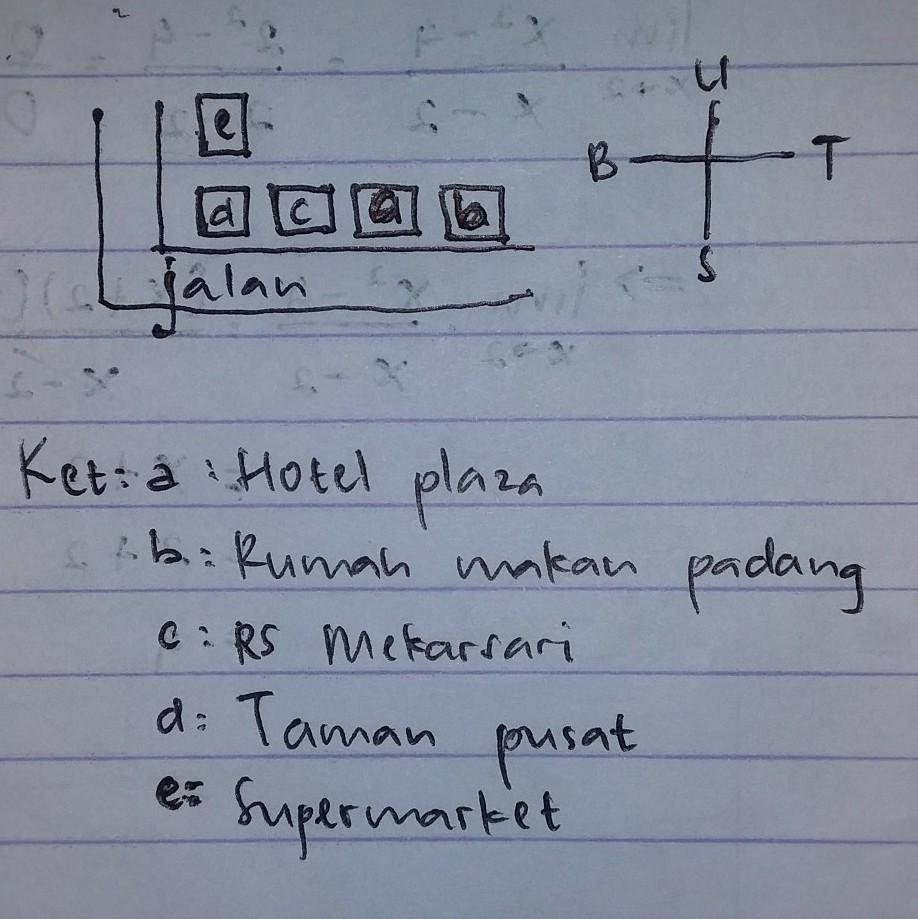 U
e
B T
d c a b
S
jalan
Ket: a : Hotel plaza
b : Rumah makan padang
c : RS Mekarsari
d : Taman pusat
e : Supermarket